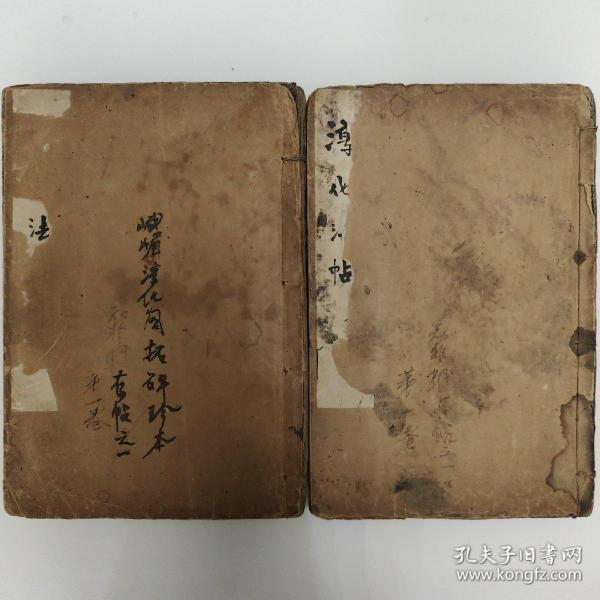 法
峨嵋淳化阁拓碑珍本
古帖之一
第一卷
淳化法帖
帖之一
第一卷
孔夫子旧书网
www.kongfz.com